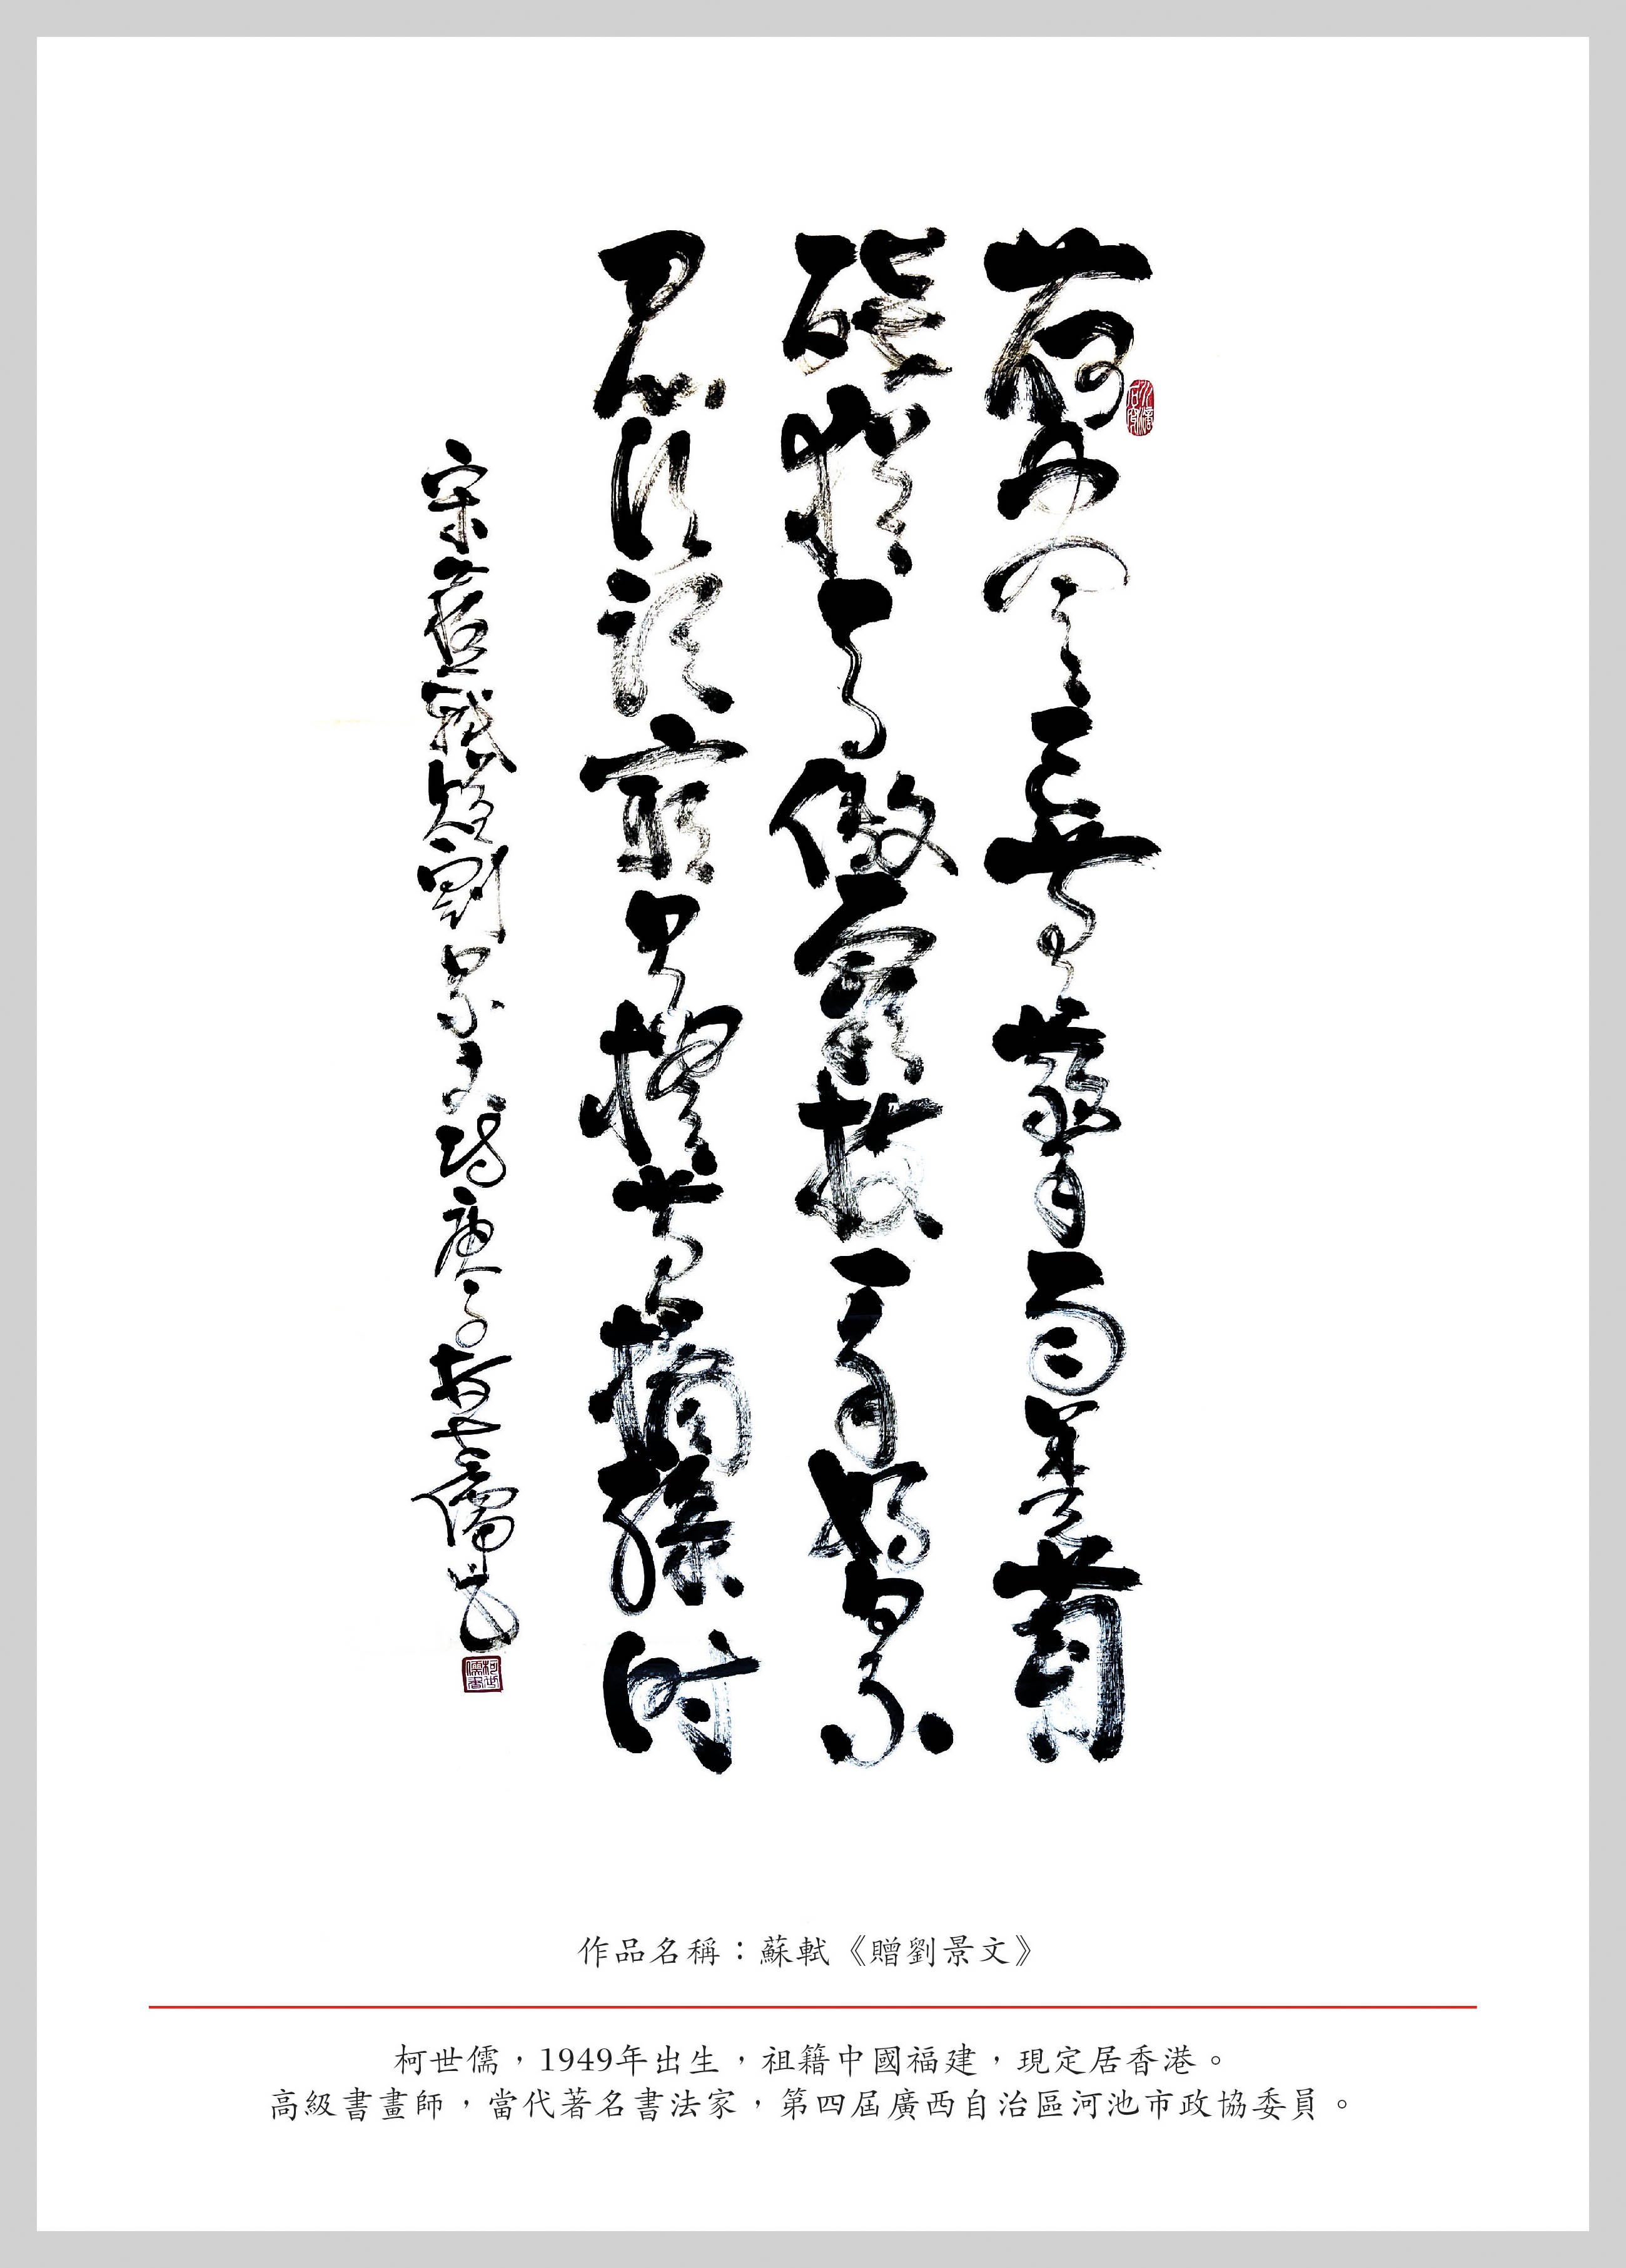 荷盡已無擎雨蓋菊
殘猶有傲霜枝一年好景
君須記最是橙黃橘綠時
宋蘇軾贈劉景文詩庚子柯世儒書
作品名稱：蘇軾《贈劉景文》
柯世儒，1949年出生，祖籍中國福建，現定居香港。
高級書畫師，當代著名書法家，第四屆廣西自治區河池市政協委員。